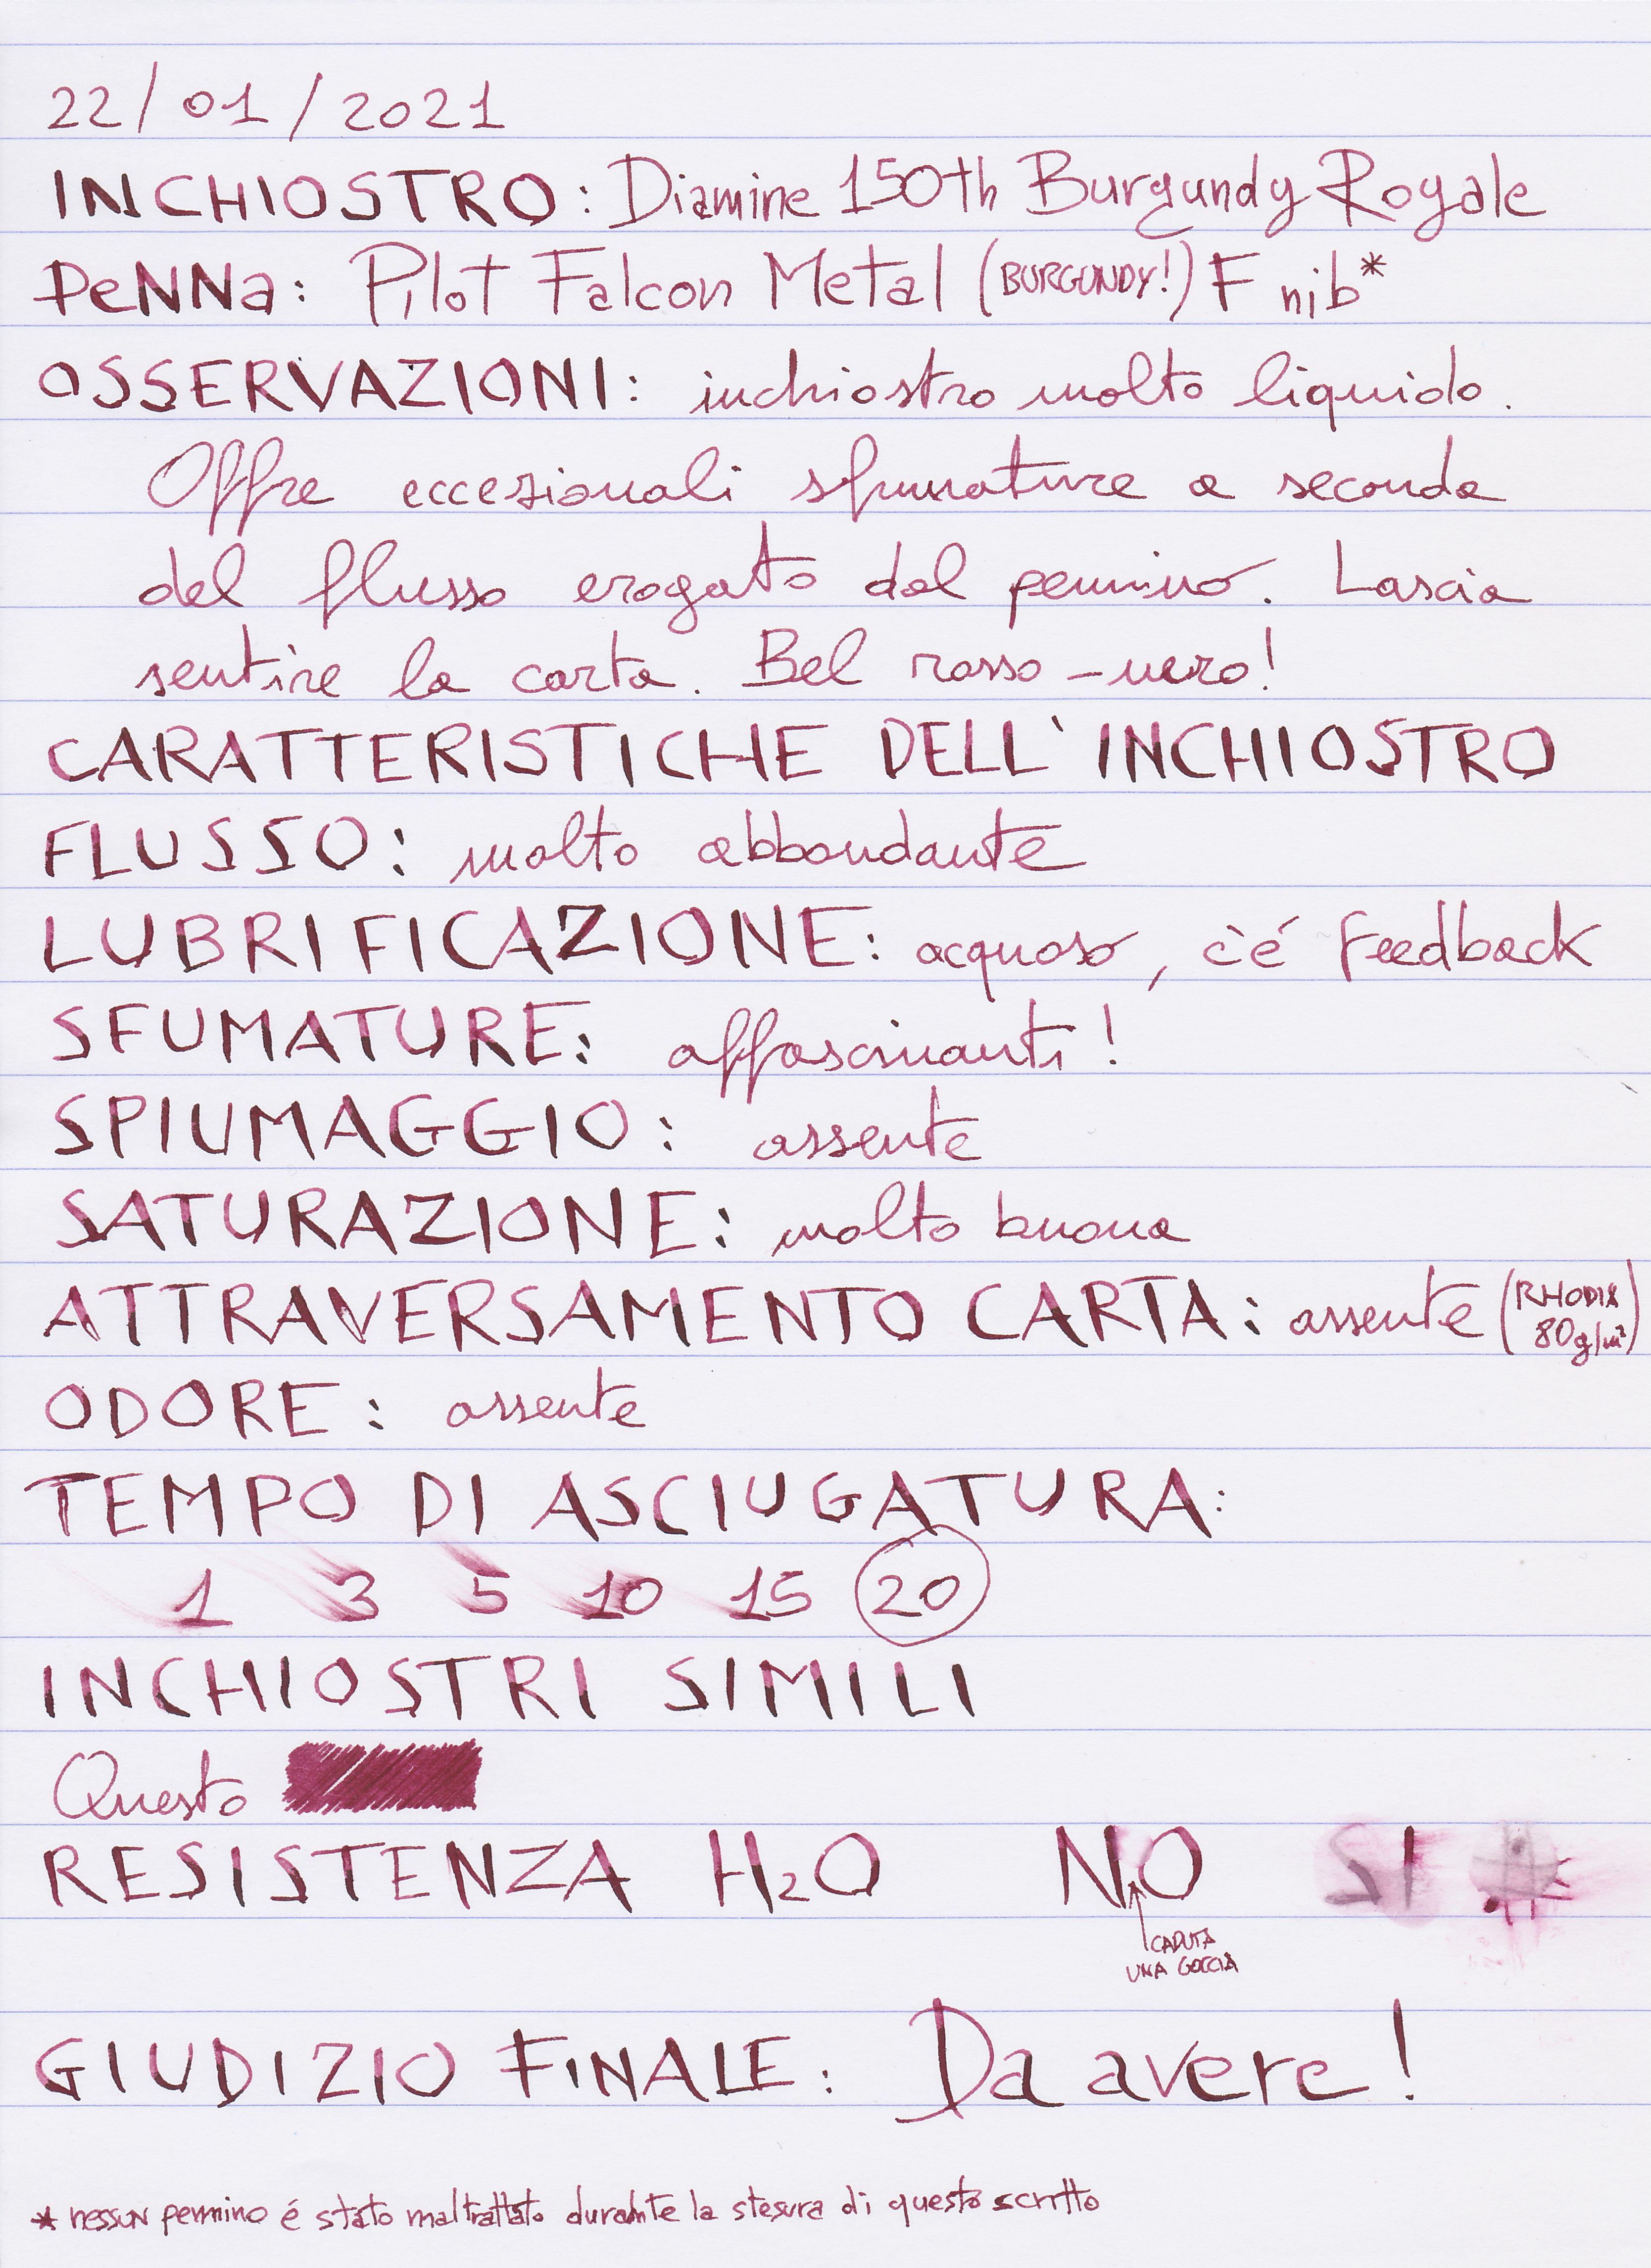 22/01/2021
INCHIOSTRO: Diamine 150th Burgundy Royale
PeNNa: Pilot Falcon Metal (BURGUNDY!) F nib*
OSSERVAZIONI: inchiostro molto liquido.
Offre eccezionali sfumature a seconda
del flusso erogato dal pennino. Lascia
sentire la carta. Bel rosso-nero!
CARATTERISTICHE DELL'INCHIOSTRO
FLUSSO: molto abbondante
LUBRIFICAZIONE: acquoso, c'é feedback
SFUMATURE: affascinanti!
SPIUMAGGIO: assente
SATURAZIONE: molto buona
ATTRAVERSAMENTO CARTA: assente (RHODIA 80g/m²)
ODORE: assente
TEMPO DI ASCIUGATURA:
1 3 5 10 15 20
INCHIOSTRI SIMILI
Questo
RESISTENZA H₂O NO SI
CADUTA
UNA GOCCIA
GIUDIZIO FINALE: Da avere!
* nessun pennino é stato maltrattato durante la stesura di questo scritto